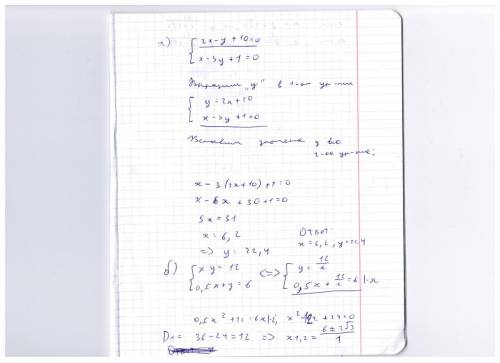 а) { 2x-y+10=0
x-3y+1=0
Выразим "y" в 1-ом ур-нии
{ y=2x+10
x-3y+1=0
Вставим значение y во
2-ое ур-ние;
x-3(2x+10)+1=0
x-6x+30+1=0
5x=31
x=6,2
=> y=22,4
Ответ:
x=6,2; y=22,4
б) { xy=12
0,5x+y=6
<=> { y=12/x
0,5x+12/x=6 |·x
0,5x²+12=6x |·2; x²-12x+24=0
D₁= 36-24=12 => x1,2= (6±2√3)/1